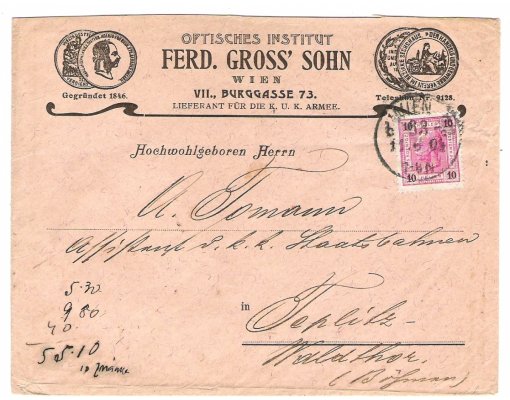 OPTISCHES INSTITUT
FERD. GROSS' SOHN
WIEN
VII., BURGGASSE 73.
LIEFERANT FÜR DIE K. U. K. ARMEE.
Gegründet 1846.
Telephon Nr. 9128.
WIEN
10 10
10 10
Hochwohlgeboren Herrn
A. Tomann
Assistent d. k. k. Staatsbahnen
in
Teplitz-
Waldthor.
(Böhmen)
5·30
9 80
40
55·10